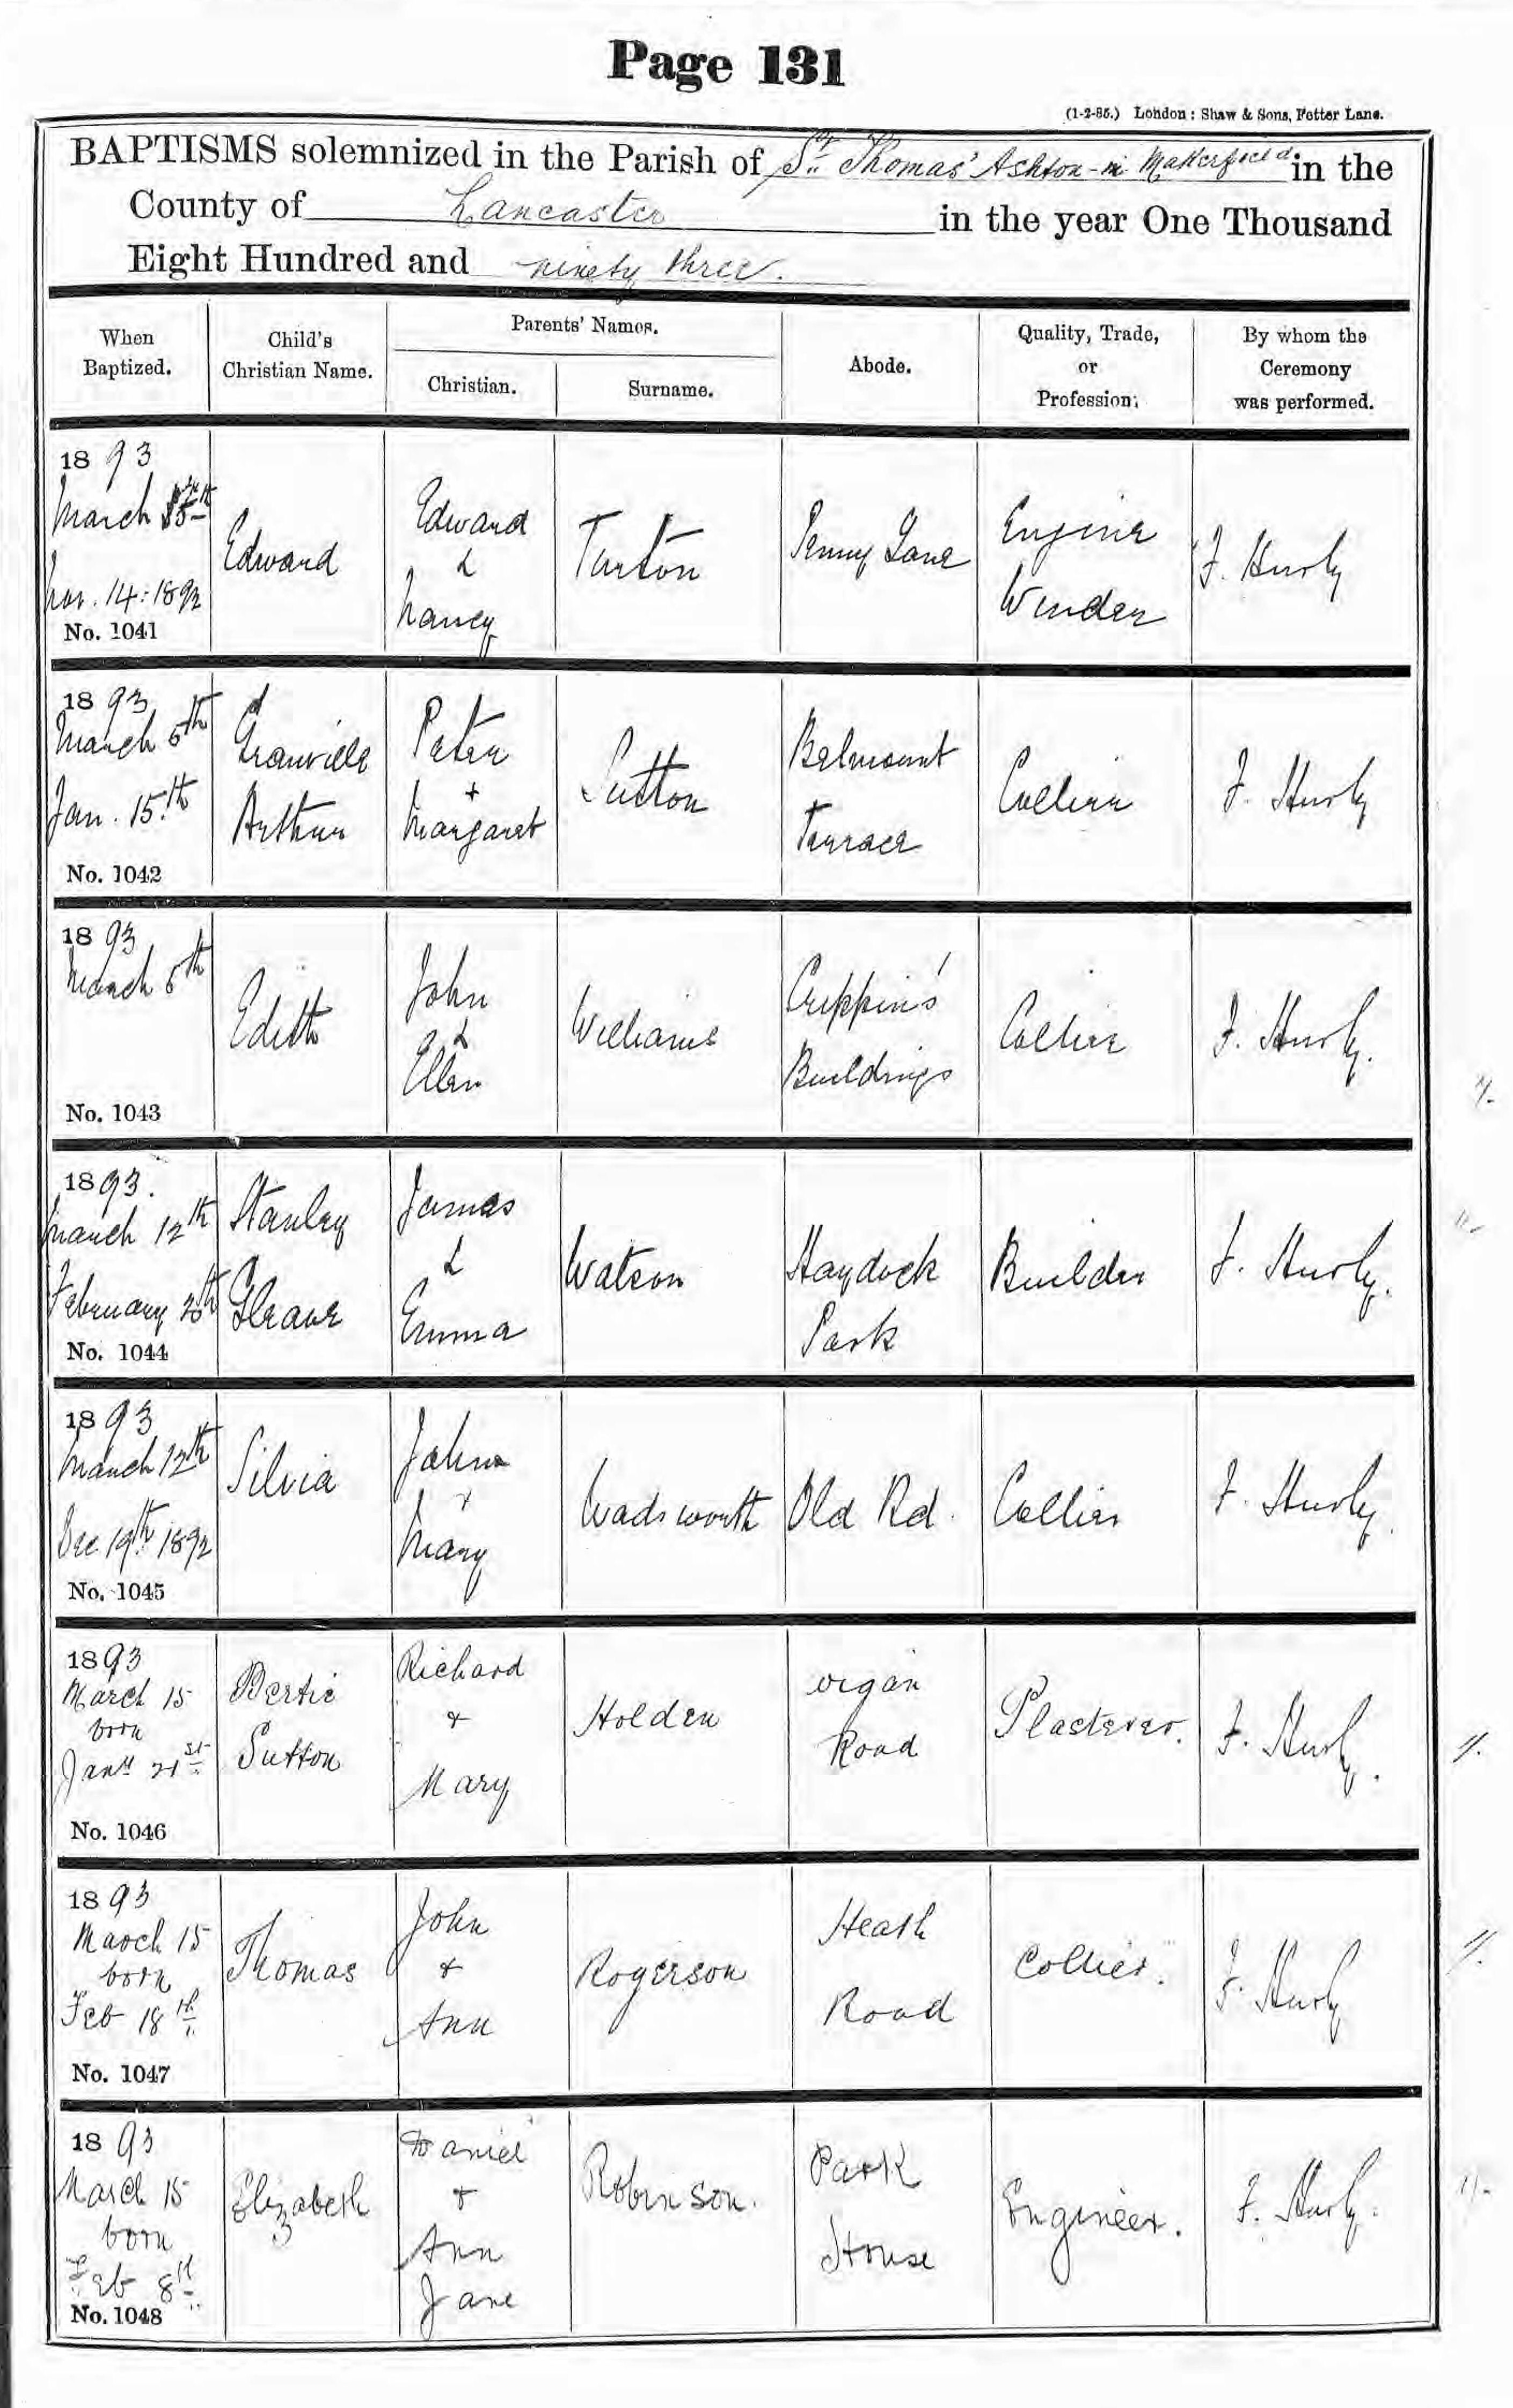 Page 131
(1-2-85.) London: Shaw & Sons, Fetter Lane.
BAPTISMS solemnized in the Parish of St. Thomas' Ashton-in-Makerfield in the
County of Lancaster in the year One Thousand
Eight Hundred and ninety three.
When
Baptized.
Child's
Christian Name.
Parents' Names.
Christian.
Surname.
Abode.
Quality, Trade,
or
Profession.
By whom the
Ceremony
was performed.
1893
March
Nov. 14: 1892
No. 1041
Edward
Edward
&
Nancy
Turton
Penny Lane
Engine
Winder
F. Hurly
1893
March 5th
Jan. 15th
No. 1042
Granville
Arthur
Peter
+
Margaret
Sutton
Belmount
Terrace
Collier
F. Hurly
1893
March 5th
No. 1043
Edith
John
&
Ellen
Williams
Crippin's
Buildings
Collier
F. Hurly.
1893.
March 12th
February 20th
No. 1044
Stanley
Gleave
James
&
Emma
Watson
Haydock
Park
Builder
F. Hurly.
1893
March 12th
Dec. 19th 1892
No. 1045
Silvia
John
+
Mary
Wadsworth
Old Rd.
Collier
F. Hurly.
1893
March 15
born
Jany 21st
No. 1046
Bertie
Sutton
Richard
+
Mary
Holden
wigan
Road
Plasterer.
F. Hurly.
1893
March 15
born
Feb 18th
No. 1047
Thomas
John
+
Ann
Rogerson
Heath
Road
Collier.
F. Hurly
1893
March 15
born
Feb 8th
No. 1048
Elizabeth
Daniel
+
Ann
Jane
Robinson.
Park
House
Engineer.
F. Hurly.